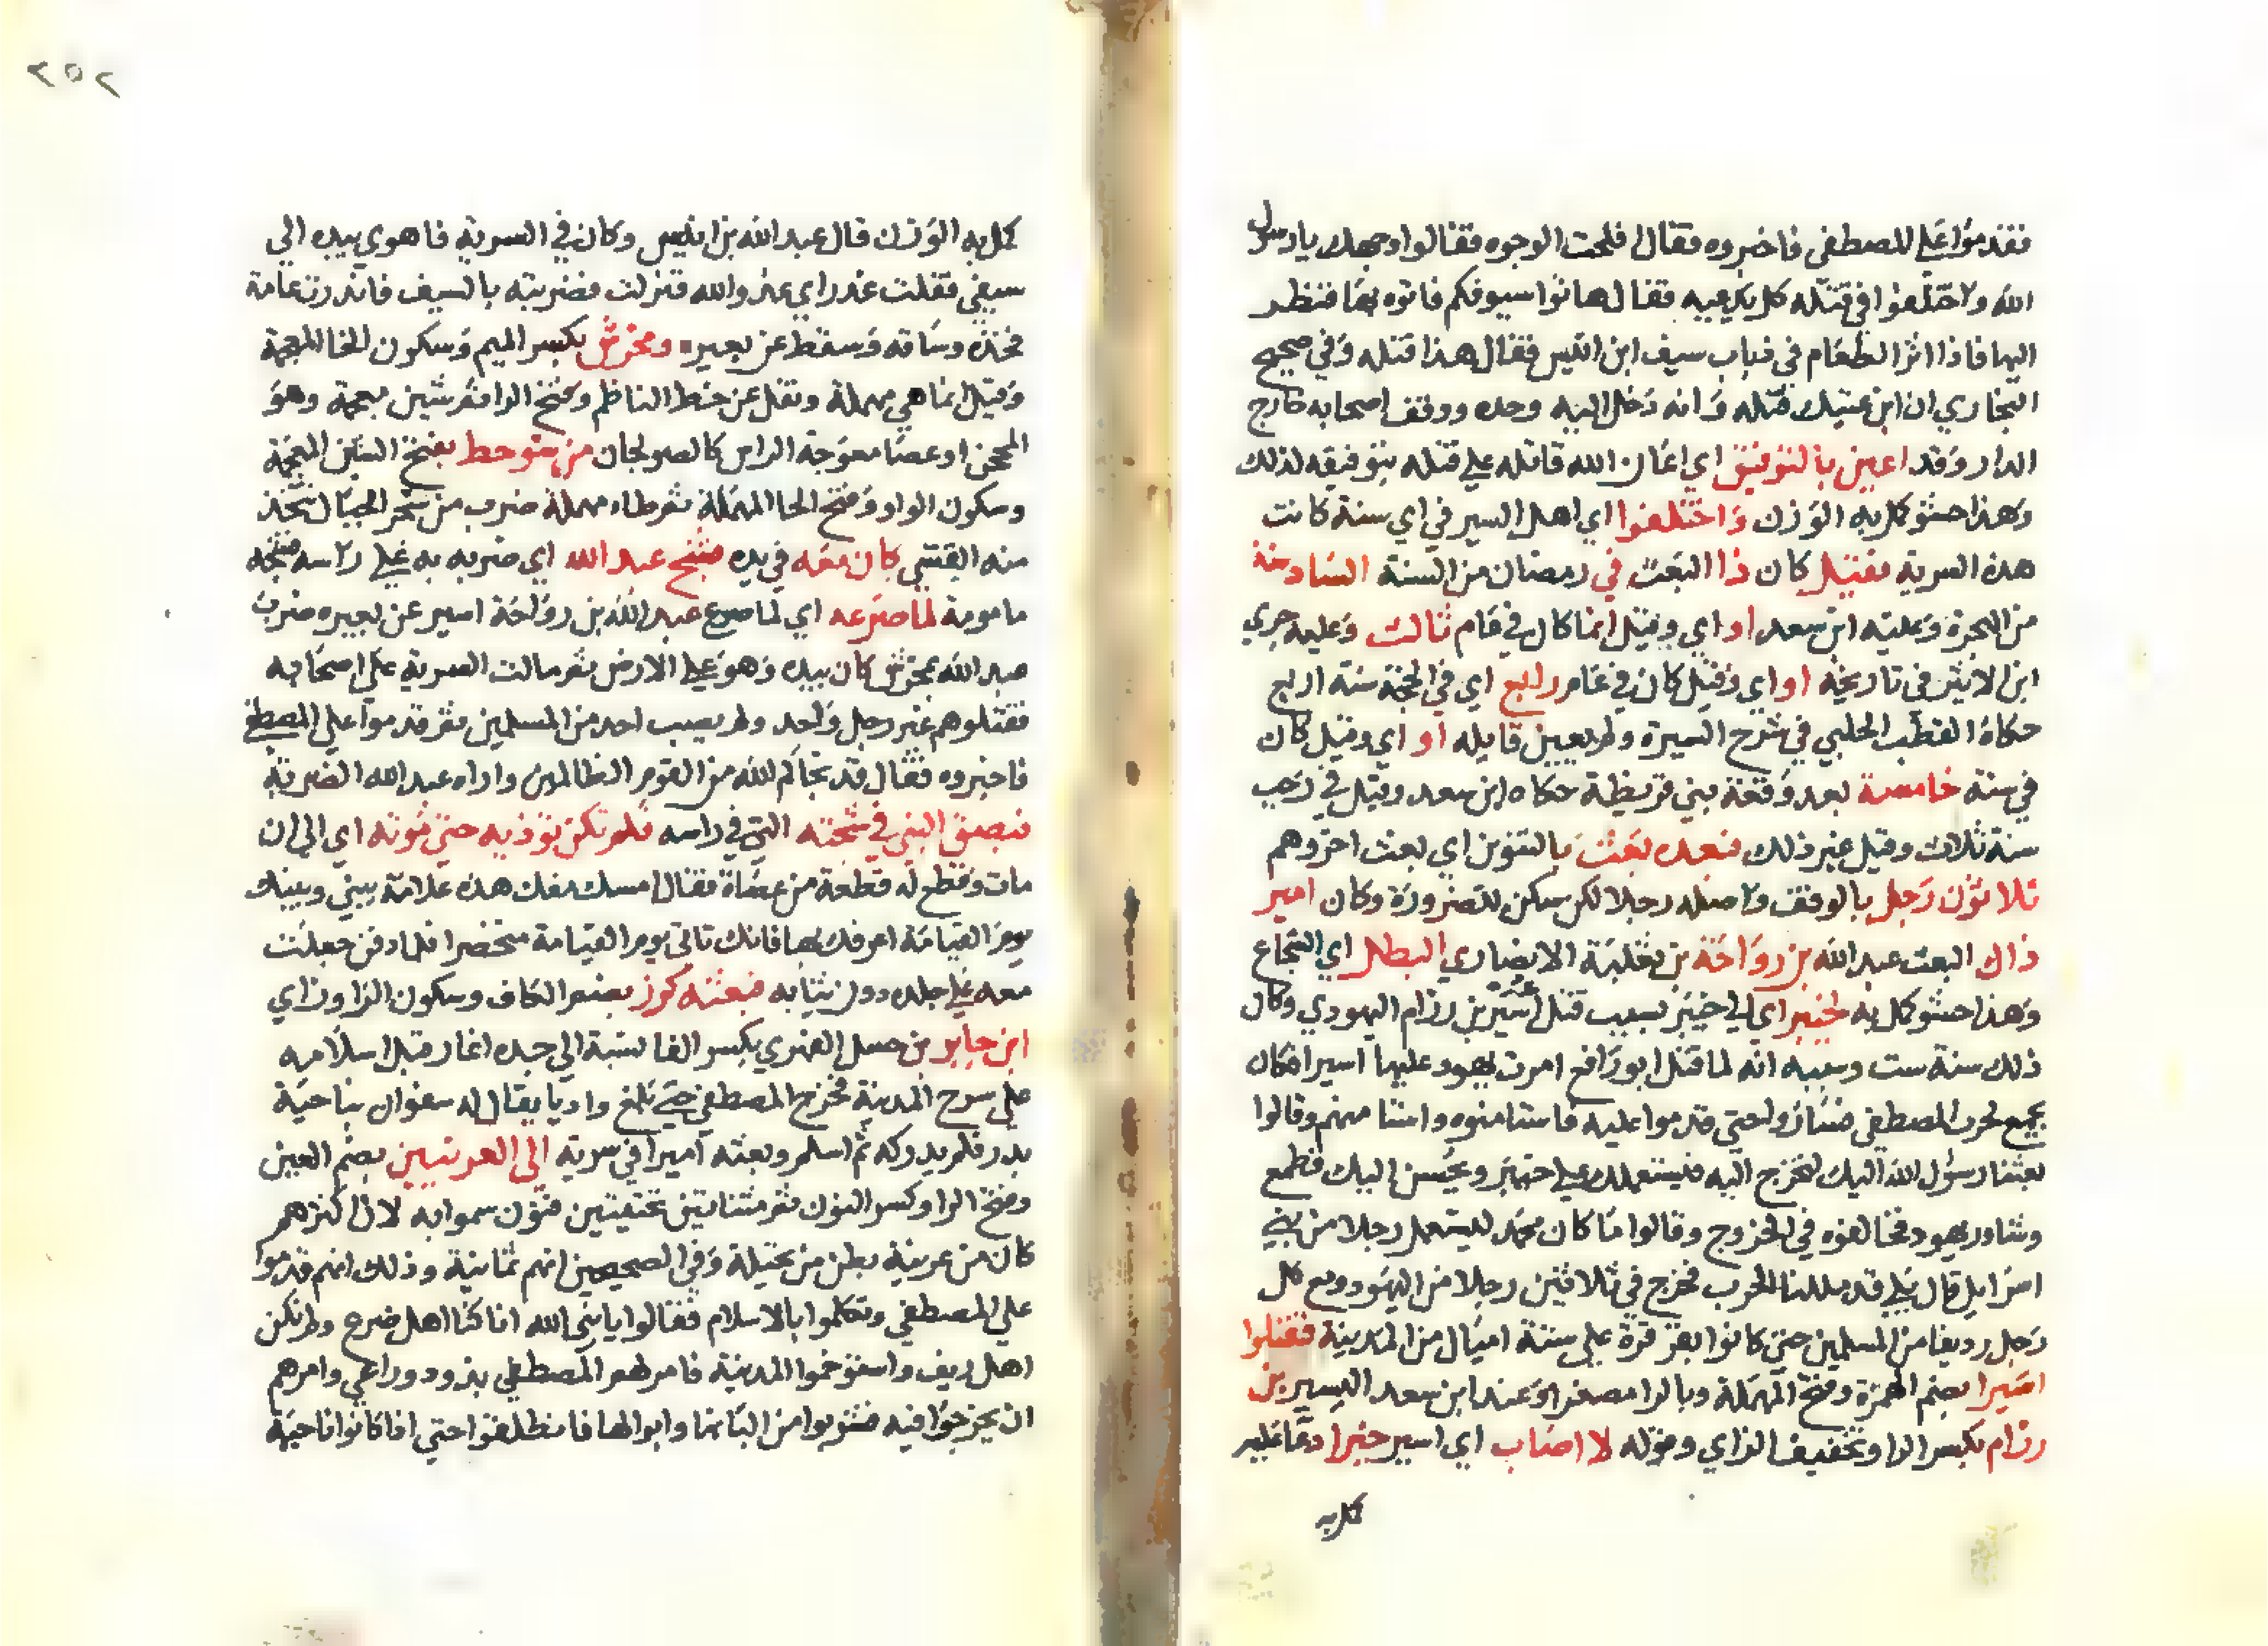 فقدموا علي المصطفي فاخبروه فقال افلحت الوجوه فقالوا وجهك يا رسول
الله واختلفوا في قتله كل يدعيه فقال هاتوا سيوفكم فاتوه بها فنظر
اليها فاذا اثر الطعام في ذباب سيف ابن انيس فقال هذا قتله وفي صحيح
البخاري ان ابن عتيك قتله وانه دخل اليه وحده ووقف اصحابه خارج
الدار وقد اعين بالتوفيق اي اعان الله قاتله علي قتله بتوفيقه لذلك
وهذا حشو كمل به الوزن واختلفوا اي اهل السير في اي سنة كانت
هذه السرية فقيل كان ذا البعث في رمضان من السنة السادسة
من الهجرة وعليه ابن سعد او اي وقيل انما كان في عام ثالث وعليه جري
ابن الاثير في تاريخه او اي وقيل كان في عام رابع اي في الحجة سنة اربع
حكاه القطب الحلبي في شرح السيرة ولم يعين قايله او اي وقيل كان
في سنة خامسة بعد وقعة بني قريظة حكاه ابن سعد وقيل في رجب
سنة ثلاث وقيل غير ذلك فبعده بعث بالتنوين اي بعث اخر وهم
ثلاثون رجل بالوقف واصله رجلا لكن سكن للضرورة وكان امير
ذاك البعث عبد الله بن رواحة بن ثعلبة الانصاري البطل اي الشجاع
وهذا حشو كمل به لخيبر اي الي خيبر بسبب قتل اسير بن رزام اليهودي وكان
ذلك سنة ست وسببه انه لما قتل ابو رافع امرت يهود عليها اسيرا فكان
يجمع لحرب المصطفي فساروا حتي قدموا عليه فاستامنوه وامنا منهم وقالوا
بعثنا رسول الله اليك لتخرج اليه فيستعملك علي خيبر ويحسن اليك فطمع
وشاور يهود فخالفوه في الخروج وقالوا ما كان محمد ليستعمل رجلا من بني
اسرايل قال بلي قد مللنا الحرب فخرج في ثلاثين رجلا من اليهود ومع كل
رجل رديفا من المسلمين حتي كانوا بقرقرة علي ستة اميال من المدينة فقتلوا
اسيرا بضم الهمزة وفتح المهملة وبالرا مصغرا وعند ابن سعد اليسير بن
رزام بكسر الرا وتخفيف الزاي وقوله لا اصاب اي اسير خيرا دعا عليه
كمل به
٢٥٢
كمل به الوزن قال عبد الله بن انيس وكان في السرية فاهوي بيده الي
سيفي فقلت غدر اي عدو الله فنزلت فضربته بالسيف فاندرت عامة
فخذه وساقه وسقط عن بعير ومخرش بكسر الميم وسكون الخا المعجمة
وقيل انما هي مهملة ونقل عن خط الناظم وفتح الرا ثم شين معجمة وهو
المحجن او عصا معوجة الراس كالصولجان من شوحط بفتح الشين المعجمة
وسكون الواو وفتح الحا المهملة ثم طاء مهملة ضرب من شجر الجبال تتخذ
منه القسي كان معه في يده فشج عبد الله اي ضربه به علي راسه فشجه
مامومة لما صرعه اي لما صرع عبد الله بن رواحة اسير عن بعيره ضرب
عبد الله بمخرش كان بيده وهو علي الارض ثم مالت السرية علي اصحابه
فقتلوهم غير رجل واحد ولم يصب احد من المسلمين ثم قدموا علي المصطفي
فاخبروه فقال قد نجاكم الله من القوم الظالمين واراه عبد الله الضربة
فبصق النبي في شجته التي في راسه فلم تكن تؤذيه حتي موته اي الي ان
مات وقطع له قطعة من عصاه فقال امسك معك هذه علامة بيني وبينك
يوم القيامة اعرفك بها فانك تاتي يوم القيامة متخضرا فلما دفن جعلت
معه علي جلده دون ثيابه فبعثه كرز بضم الكاف وسكون الرا وزاي
ابن جابر بن حسل الفهري بكسر الفا نسبة الي جده اغار قبل اسلامه
علي سرح المدينة فخرج المصطفي حتي بلغ واديا يقال له سفوان بناحية
بدر فلم يدركه ثم اسلم وبعثه اميرا في سرية الي العرنيين بضم العين
وفتح الرا وكسر النون ثم مثناتين تحتيتين فنون سموا به لان اكثرهم
كان من عرينة بطن من بجيلة وفي الصحيحين انهم ثمانية وذلك انهم قدموا
علي المصطفي وتكلموا بالاسلام فقالوا يا نبي الله انا كنا اهل ضرع ولم نكن
اهل ريف واستوخموا المدينة فامر لهم المصطفي بذود وراعي وامرهم
ان يخرجوا فيه فشربوا من البانها وابوالها فانطلقوا حتي اذا كانوا ناحية